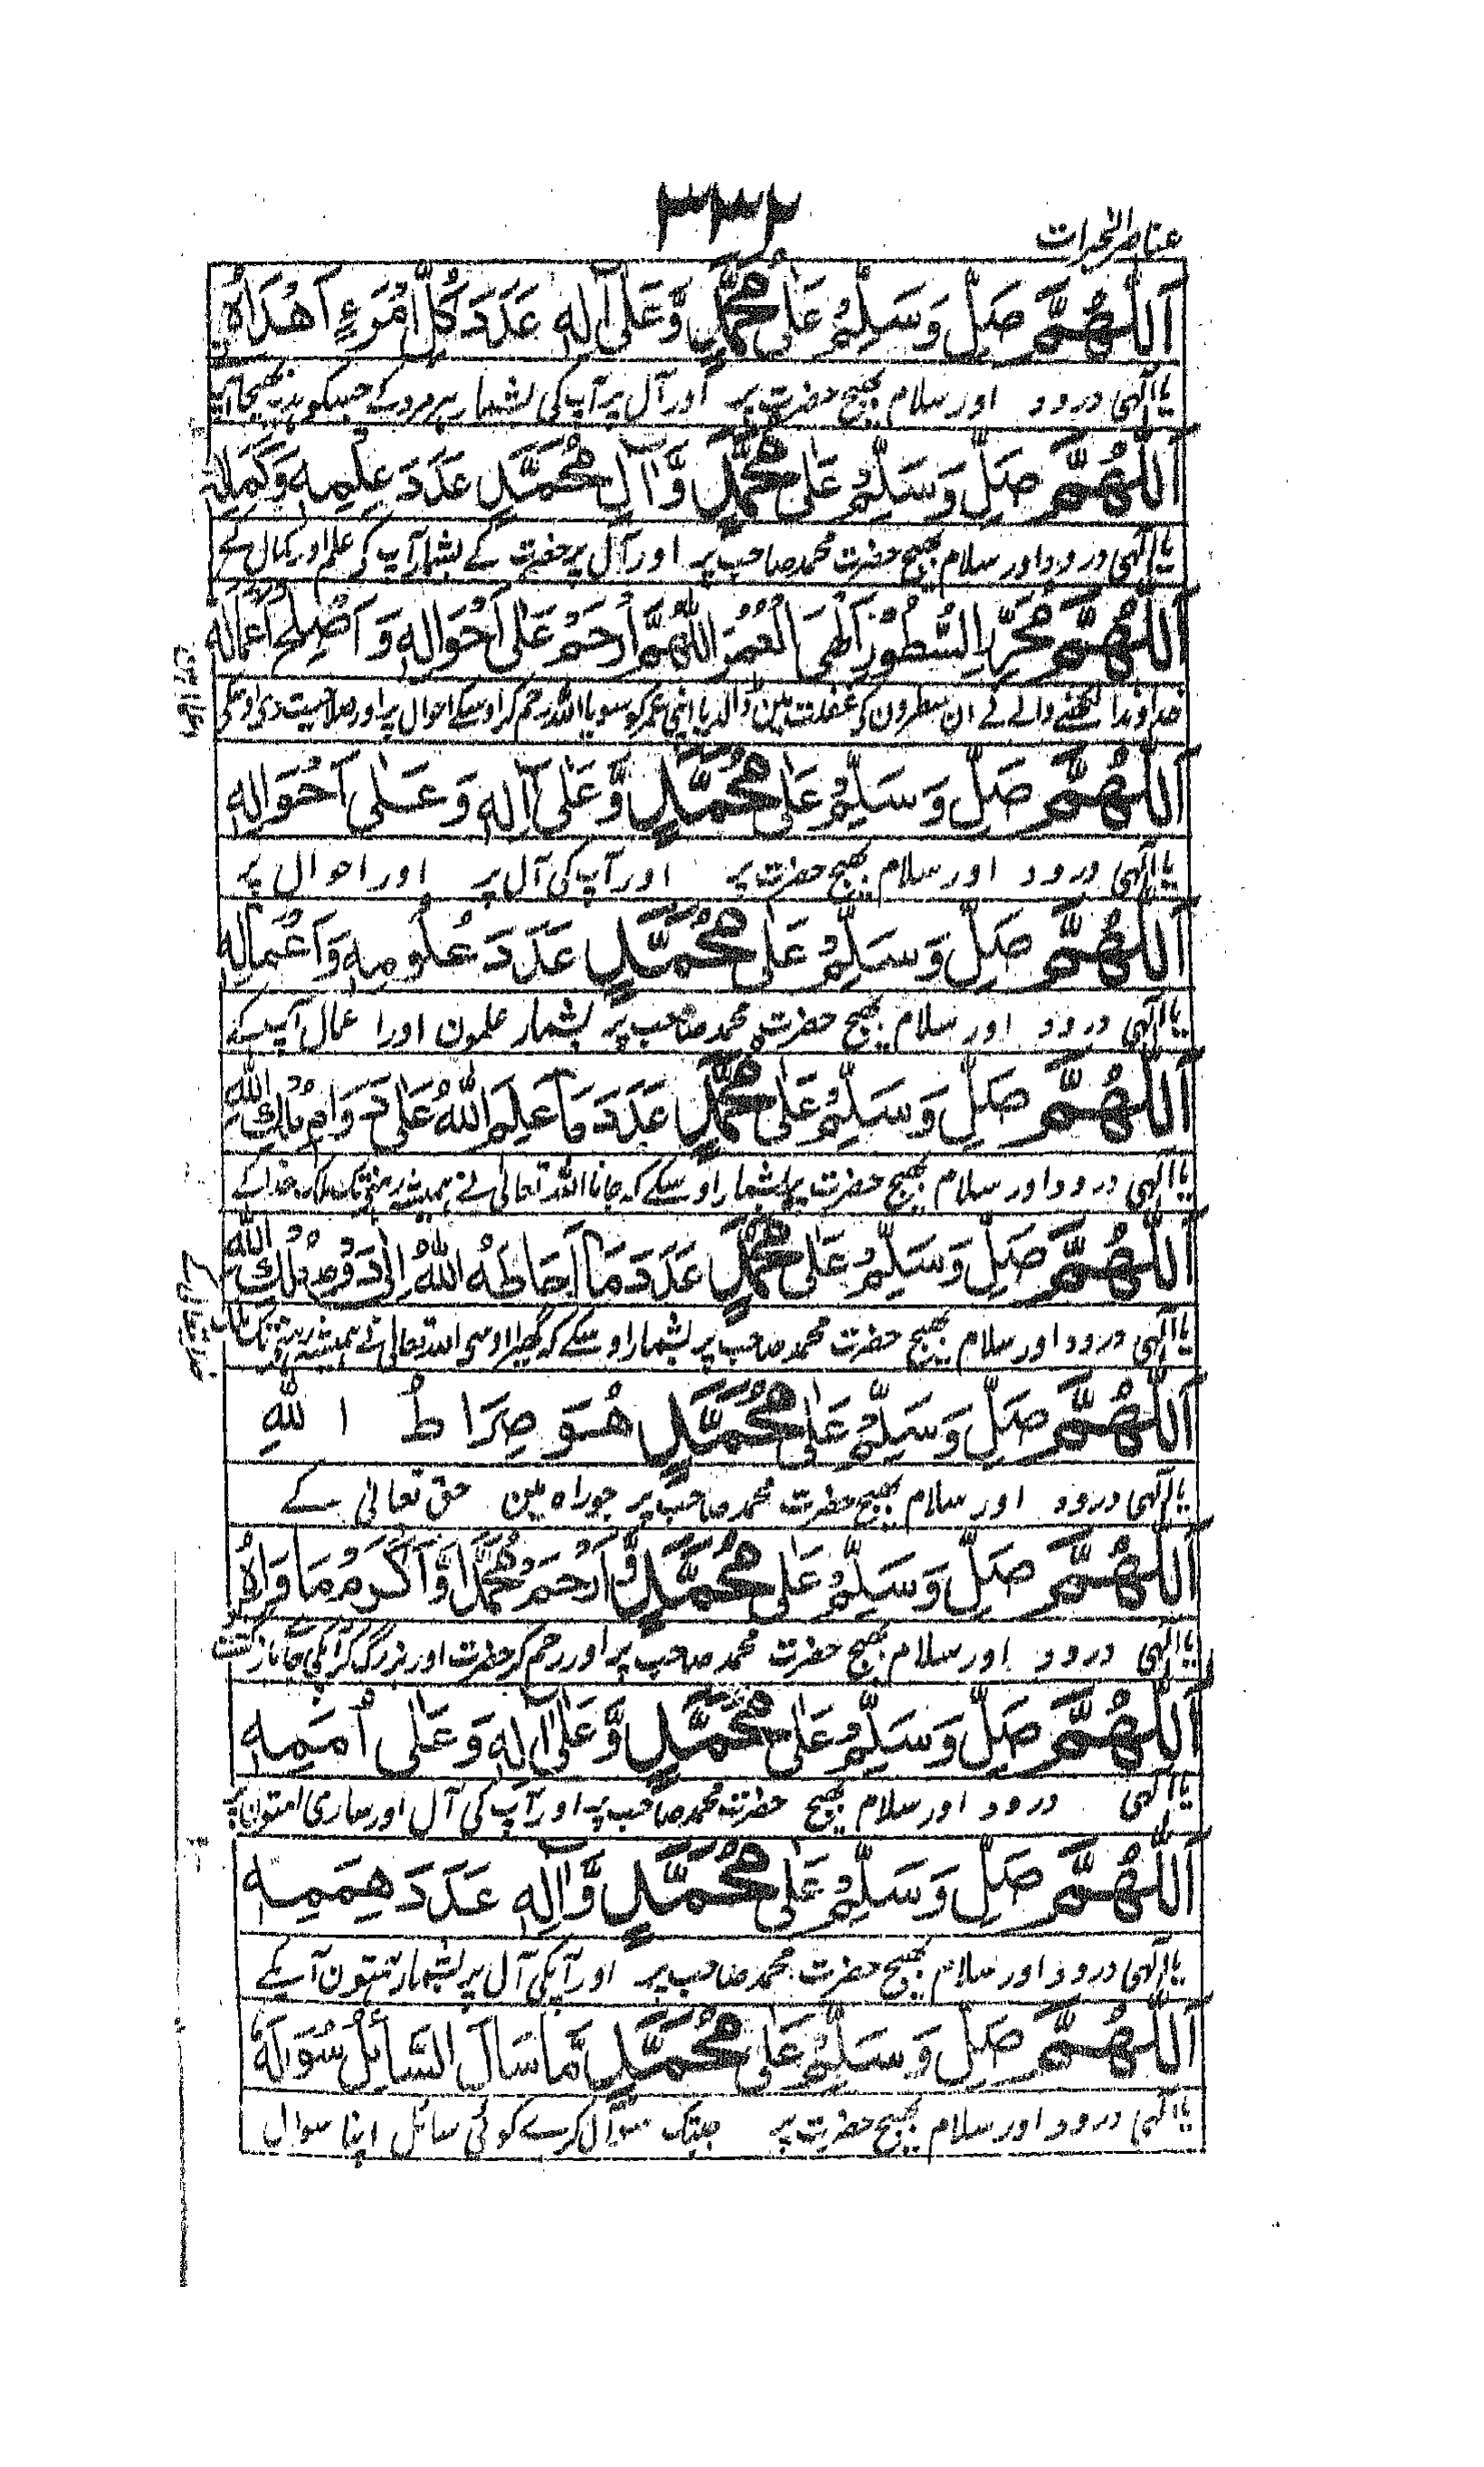 ۳۳۲
عناصر الخیرات
اَللّٰهُمَّ صَلِّ وَسَلِّمْ عَلٰى مُحَمَّدٍ وَّعَلٰى اٰلِهٖ عَدَدَ كُلِّ امْرَءٍ اَهْدَاهُ
یا الٰہی درود اور سلام بھیج حضرت پر اور آل پر آپ کی بشمار ہر مرد کے جسکو
اَللّٰهُمَّ صَلِّ وَسَلِّمْ عَلٰى مُحَمَّدٍ وَّاٰلِ مُحَمَّدٍ عَدَدَ عِلْمِهٖ وَكَمَالِهٖ
یا الٰہی درود اور سلام بھیج حضرت محمد صاحب پر اور آل پر حضرت کے بشمار آپ کے علم اور کمال کے
اَللّٰهُمَّ السُّطُوْرِ الْعُمُرَ اللّٰهُمَّ ارْحَمْ عَلٰى اَحْوَالِهٖ وَاَصْلِحْ اَعْمَالَهٗ
خداوندا لکھنے والے نے ان سطرون کی غفلت مین ڈالدیا اپنی عمر کو سو یا اللہ رحم کر اوسکے احوال پر اور صلاحیت دی اوسکی
اَللّٰهُمَّ صَلِّ وَسَلِّمْ عَلٰى مُحَمَّدٍ وَّعَلٰى اٰلِهٖ وَعَلٰى اَحْوَالِهٖ
یا الٰہی درود اور سلام بھیج حضرت پر اور آپ کی آل پر اور احوال پر
اَللّٰهُمَّ صَلِّ وَسَلِّمْ عَلٰى مُحَمَّدٍ عَدَدَ عُلُوْمِهٖ وَاَعْمَالِهٖ
یا الٰہی درود اور سلام بھیج حضرت محمد صاحب پر بشمار علمون اور اعمال آپ کے
اَللّٰهُمَّ صَلِّ وَسَلِّمْ عَلٰى مُحَمَّدٍ عَدَدَ مَا عَلِمَ اللّٰهُ عَلٰى دَوَامِ مُلْكِ اللّٰهِ
یا الٰہی درود اور سلام بھیج حضرت پر بشمار اوسکے کہ جانا اللہ تعالی نے ہمیشہ رہنے تک ملک خدا کے
اَللّٰهُمَّ صَلِّ وَسَلِّمْ عَلٰى مُحَمَّدٍ عَدَدَ مَا اَحَاطَهُ اللّٰهُ اِلٰى دَوَمِ مُلْكِ اللّٰهِ
یا الٰہی درود اور سلام بھیج حضرت محمد صاحب پر بشمار اوسکے کہ گھیرا اوسی اللہ تعالی نے ہمیشہ رہنے تک
اَللّٰهُمَّ صَلِّ وَسَلِّمْ عَلٰى مُحَمَّدٍ هُوَ صِرَاطُ اللّٰهِ
یا الٰہی درود اور سلام بھیج حضرت محمد صاحب پر جو راہ ہین حق تعالی کے
اَللّٰهُمَّ صَلِّ وَسَلِّمْ عَلٰى مُحَمَّدٍ وَّارْحَمْ مُحَمَّدًا وَّاَكْرِمْ مَاوَاهُ
یا الٰہی درود اور سلام بھیج حضرت محمد صاحب پر اور رحم کر حضرت اور بزرگ کر آپکی
اَللّٰهُمَّ صَلِّ وَسَلِّمْ عَلٰى مُحَمَّدٍ وَّعَلٰى اٰلِهٖ وَعَلٰى اُمَمِهٖ
یا الٰہی درود اور سلام بھیج حضرت محمد صاحب پر اور آپ کی آل اور ساری امتون پر
اَللّٰهُمَّ صَلِّ وَسَلِّمْ عَلٰى مُحَمَّدٍ وَّاٰلِهٖ عَدَدَ هِمَمِهٖ
یا الٰہی درود اور سلام بھیج حضرت محمد صاحب پر اور آپکی آل پر بشمار ہمتون آپکے
اَللّٰهُمَّ صَلِّ وَسَلِّمْ عَلٰى مُحَمَّدٍ مَّا سَاَلَ السَّائِلُ سُوَالَهٗ
یا الٰہی درود اور سلام بھیج حضرت پر جبتک سوال کرے کوئی سائل اپنا سوال